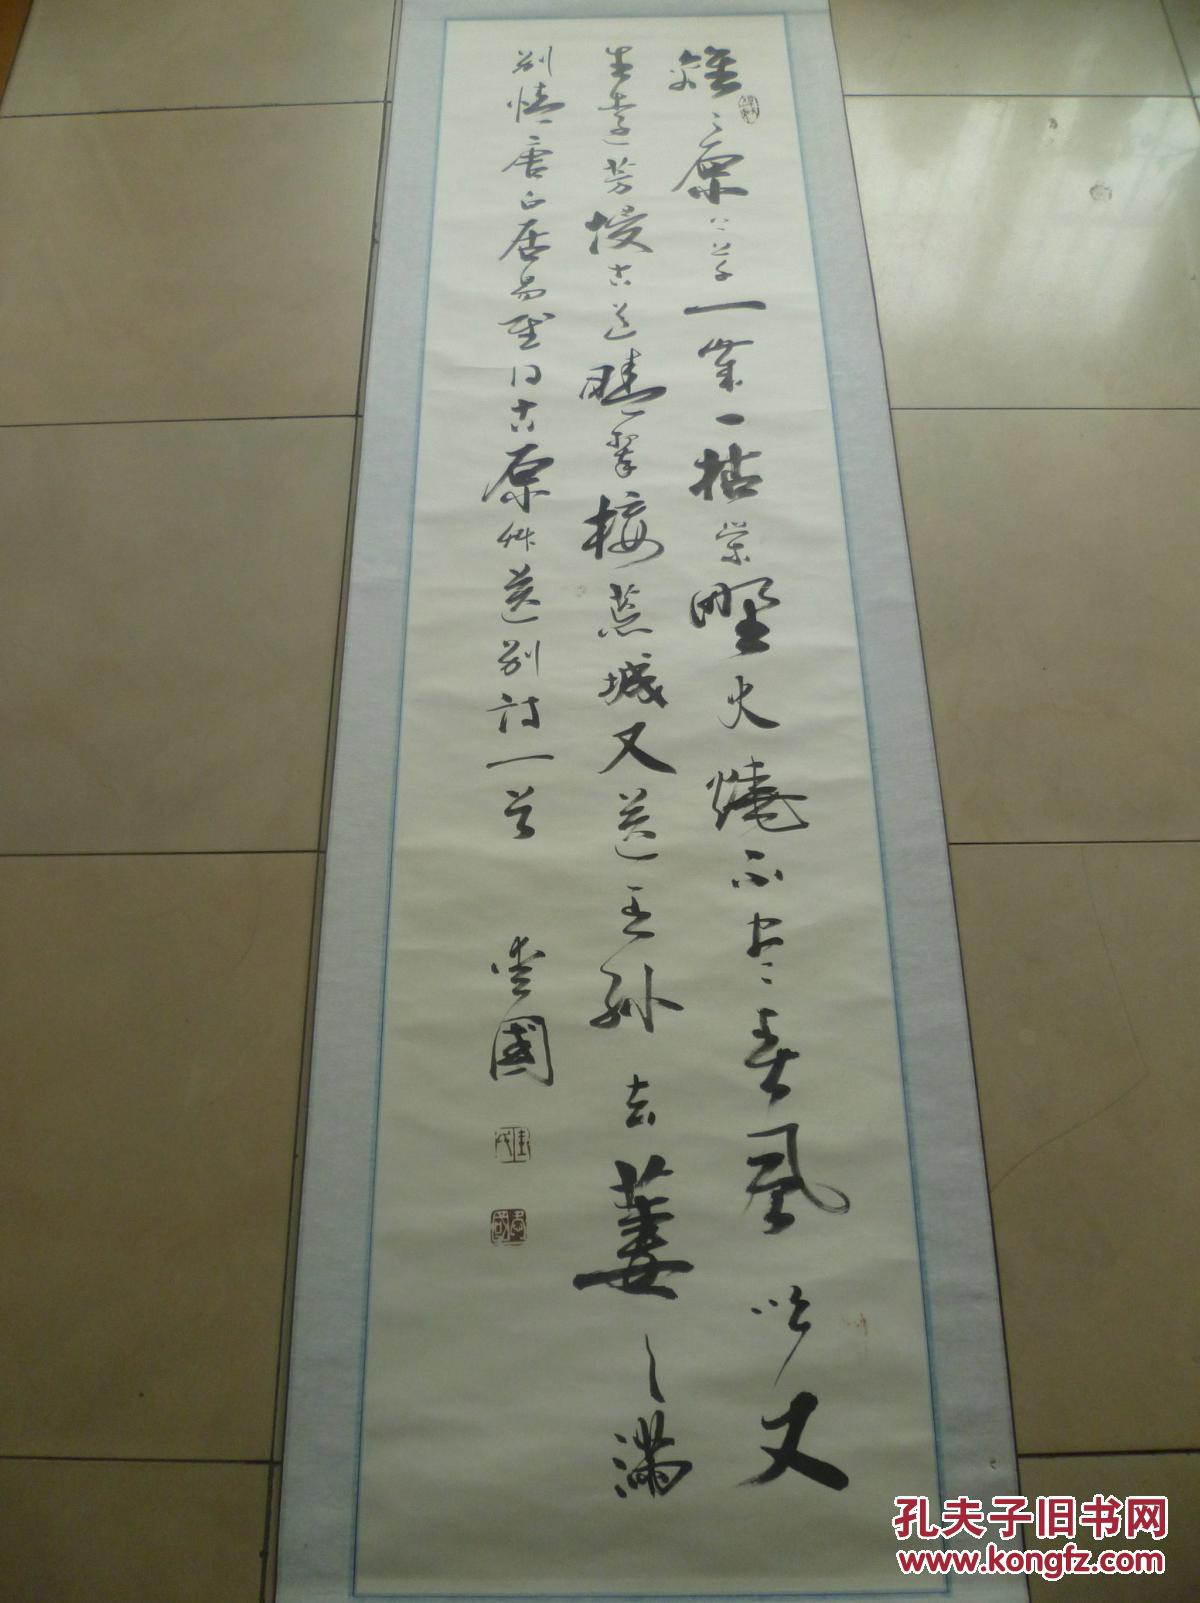 離〻原上草一歲一枯榮野火燒不盡春風吹又
生遠芳侵古道晴翠接荒城又送王孫去萋〻滿
別情唐白居易賦得古原艸送別詩一首
國
孔夫子旧书网
www.kongfz.com